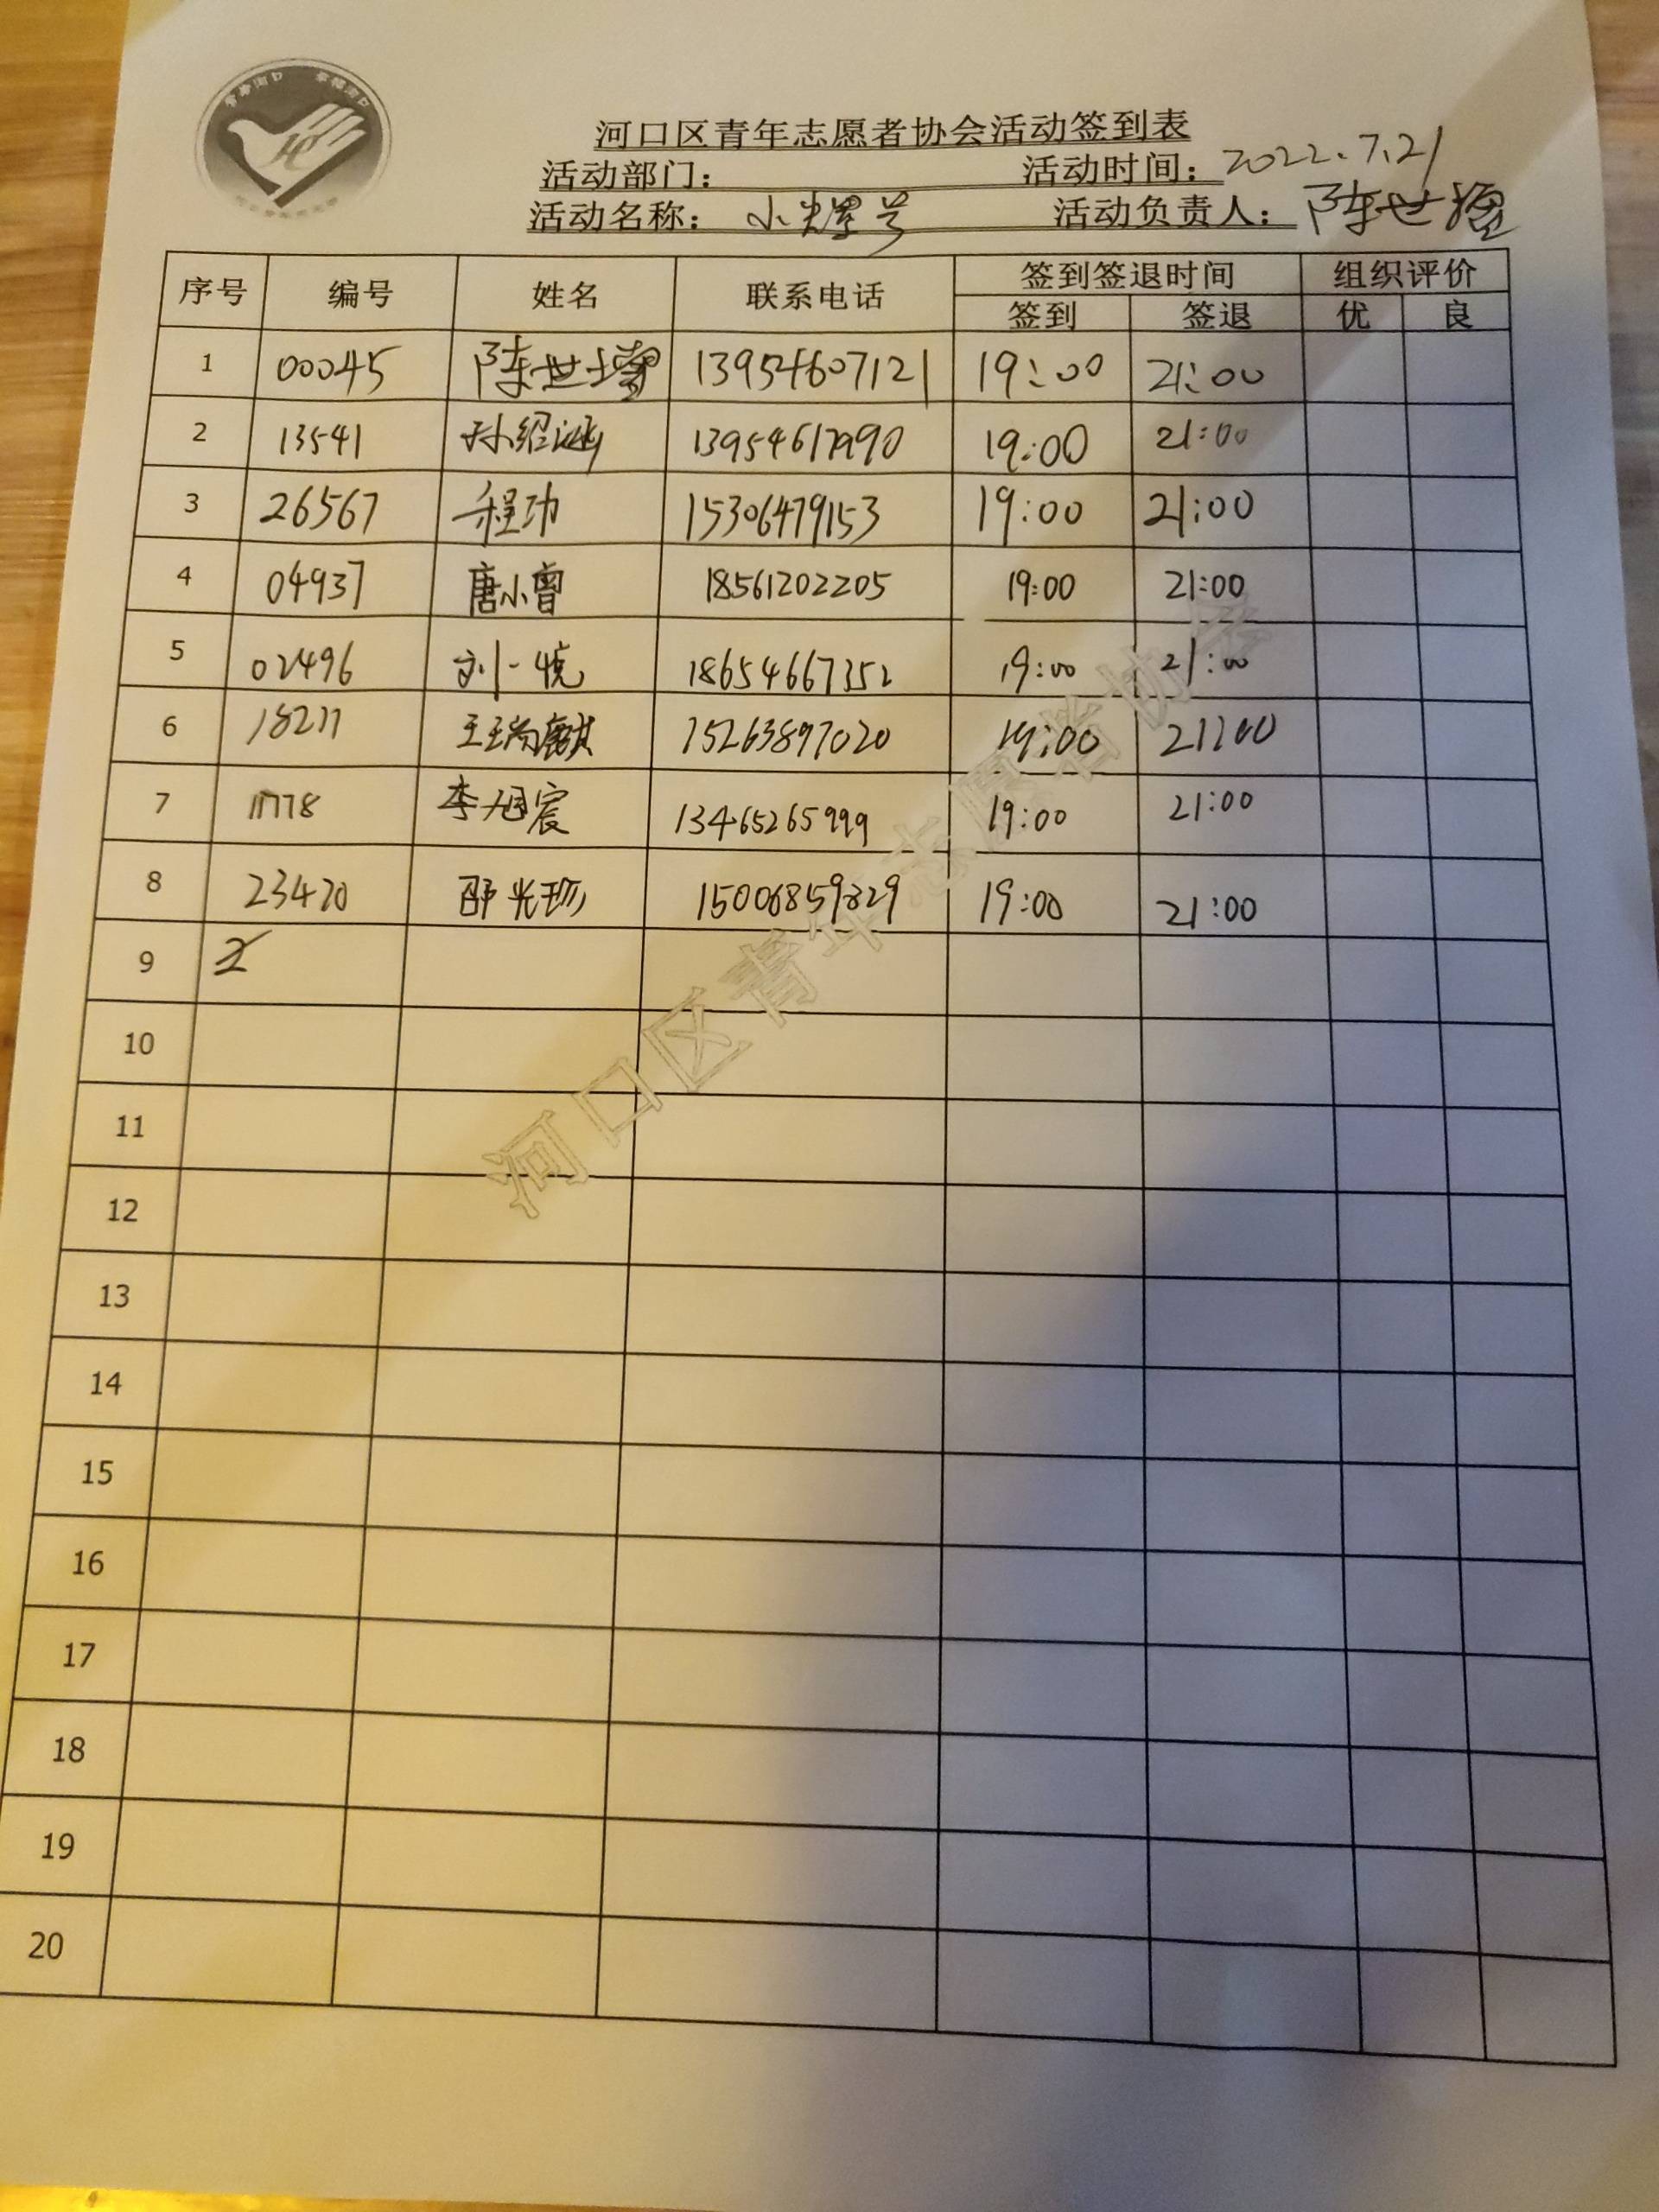 青春河口 幸福河口
河口区青年志愿者协会活动签到表
活动部门： 活动时间：2022.7.21
活动名称：小辉号 活动负责人：陈世增
序号 编号 姓名 联系电话 签到签退时间 组织评价
签到 签退 优 良
1 00045 陈世增 13954607121 19:00 21:00
2 13541 孙绍 19:00 21:00
3 26567 程功 15306479153 19:00 21:00
4 04937 唐小曾 18561202205 19:00 21:00
5 02496 刘一悦 18654667352 19:00 21:00
6 王瑞麒 15263897020 19:00 21:00
7 李旭宸 13465265999 19:00 21:00
8 23420 邵光珍 15006859329 19:00 21:00
9
10
11
12
13
14
15
16
17
18
19
20
河口区青年志愿者协会